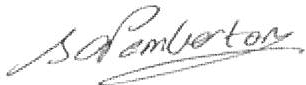 S A Pemberton